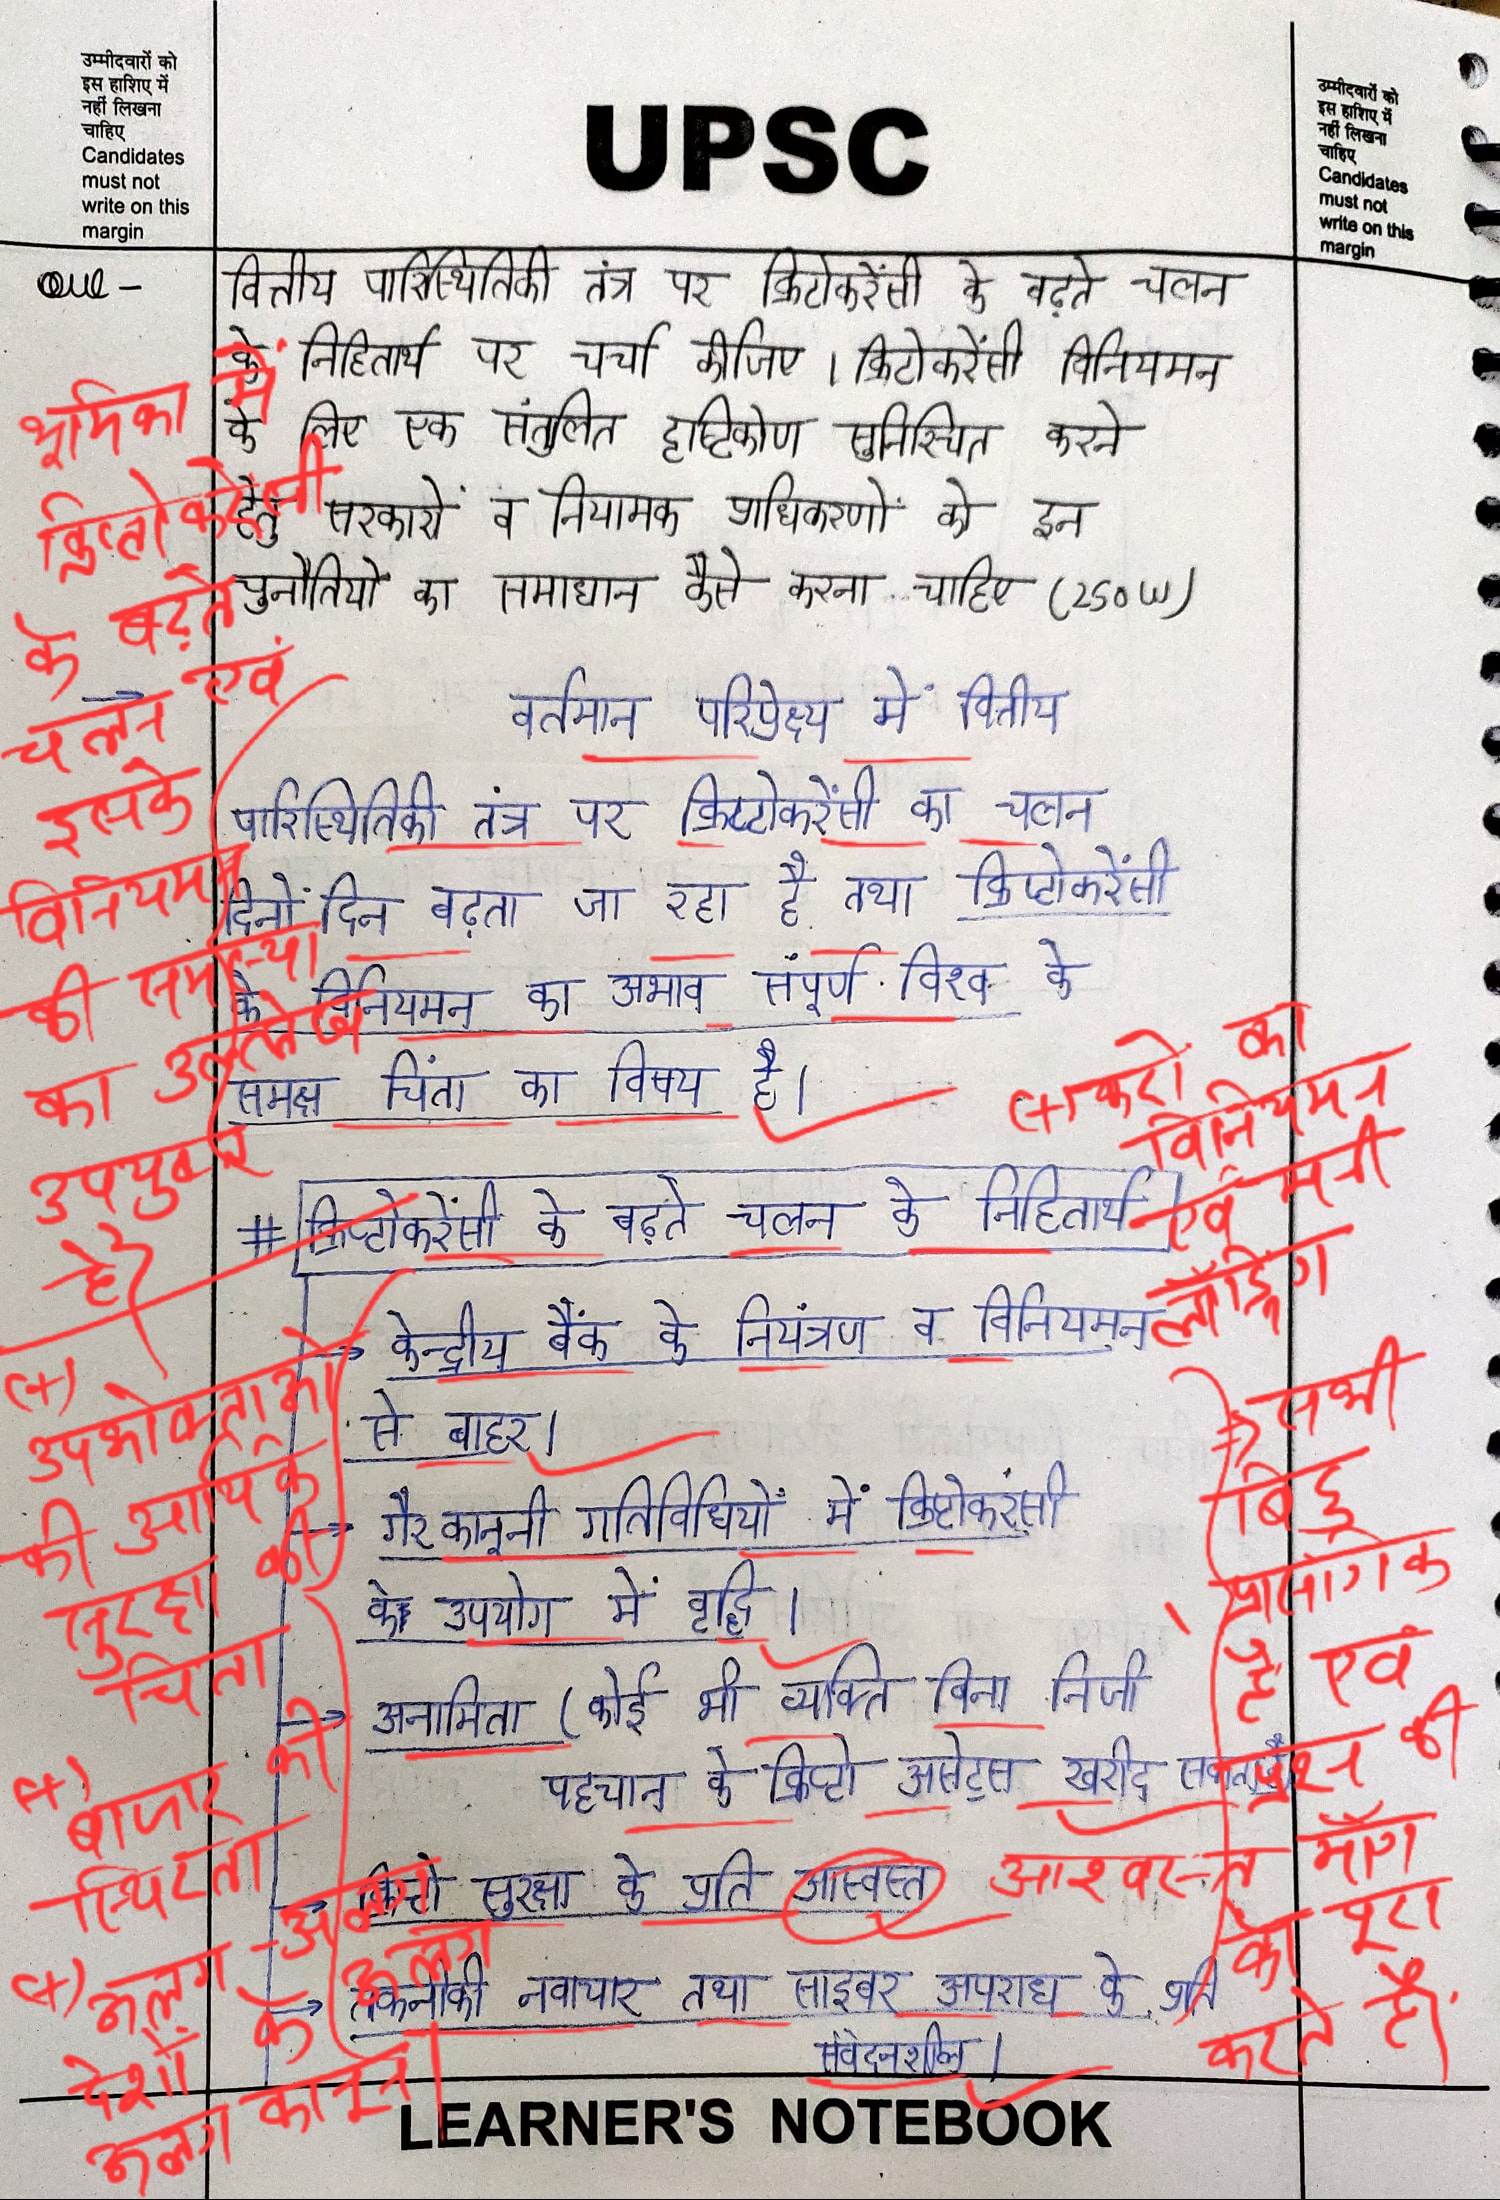 उम्मीदवारों को
इस हाशिए में
नहीं लिखना
चाहिए
Candidates
must not
write on this
margin
UPSC
उम्मीदवारों को
इस हाशिए में
नहीं लिखना
चाहिए
Candidates
must not
write on this
margin
Que -
वित्तीय पारिस्थितिकी तंत्र पर क्रिप्टोकरेंसी के बढ़ते चलन
के निहितार्थ पर चर्चा कीजिए । क्रिप्टोकरेंसी विनियमन
के लिए एक संतुलित दृष्टिकोण सुनिश्चित करने
हेतु सरकारों व नियामक प्राधिकरणों को इन
चुनौतियों का समाधान कैसे करना चाहिए (250W)
भूमिका में
क्रिप्टोकरेंसी
के बढ़ते
चलन एवं
इसके
विनियमन
की समस्या
का उल्लेख
उपयुक्त
है।
→ वर्तमान परिप्रेक्ष्य में वित्तीय
पारिस्थितिकी तंत्र पर क्रिप्टोकरेंसी का चलन
दिनों दिन बढ़ता जा रहा है तथा क्रिप्टोकरेंसी
के विनियमन का अभाव संपूर्ण विश्व के
समक्ष चिंता का विषय है।
(+) करो का
विनियमन
एवं मनी
लॉड्रिंग
# क्रिप्टोकरेंसी के बढ़ते चलन के निहितार्थ
→ केन्द्रीय बैंक के नियंत्रण व विनियमन
से बाहर।
→ गैरकानूनी गतिविधियों में क्रिप्टोकरंसी
के उपयोग में वृद्धि ।
→ अनामिता (कोई भी व्यक्ति बिना निजी
पहचान के क्रिप्टो असेट्स खरीद सकता है
→ क्रिप्टो सुरक्षा के प्रति आस्वस्त आश्वस्त
→ तकनीकी नवाचार तथा साइबर अपराध के प्रति
संवेदनशील ।
(+)
उपभोक्ताओं
की आर्थिक
सुरक्षा की
चिंता
(+) बाजार की
स्थिरता
(+) अलग-अलग
देशों के अलग
अलग कानून
⇒ सभी
बिंदु
प्रासंगिक
है एवं
प्रश्न की
माँग
को पूरा
करते हैं।
LEARNER'S NOTEBOOK